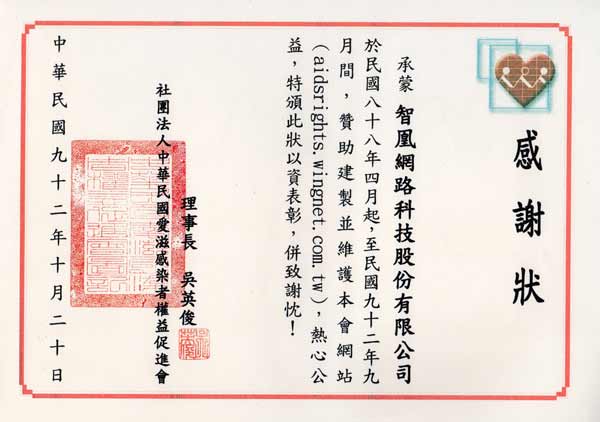 感謝狀
承蒙 智凰網路科技股份有限公司
於民國八十八年四月起，至民國九十二年九
月間，贊助建製並維護本會網站
（aidsrights.wingnet.com.tw），熱心公
益，特頒此狀以資表彰，併致謝忱！
理事長 吳英俊
社團法人中華民國愛滋感染者權益促進會
中華民國九十二年十月二十日